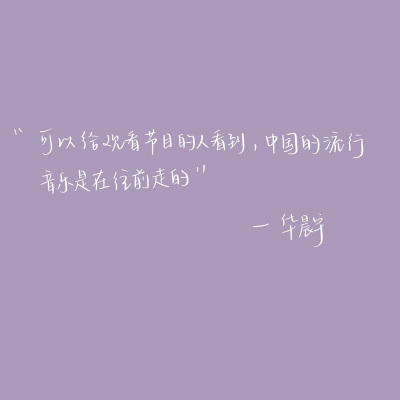 “可以给观看节目的人看到,中国的流行
音乐是在往前走的”
— 华晨宇